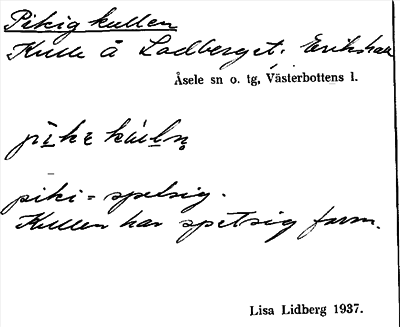 Pikig kullen
Kulle å Lodberget. Eriksbac
Åsele sn o. tg, Västerbottens l.
piki = spetsig.
Kullen har spetsig form.
Lisa Lidberg 1937.